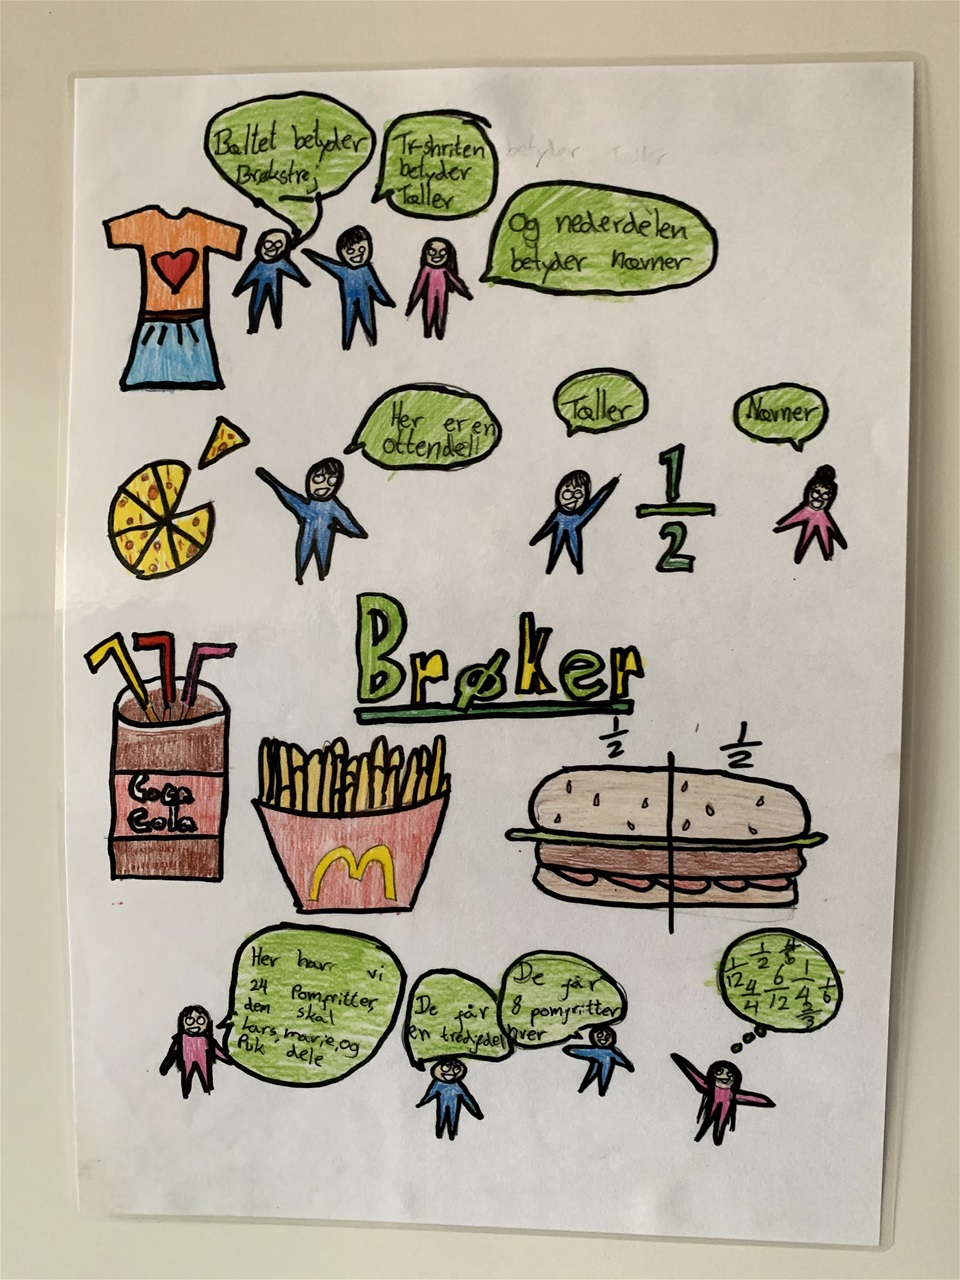 Bæltet betyder
Brøkstrej
Tr-shriten
betyder
Tæller
betyder Tæller
Og nederdelen
betyder Nævner
Her er en
ottendell
Tæller
Nævner
1
2
Brøker
1
2
1
2
Coca
Cola
M
Her harr vi
24 Pomfritter,
den skal
Lars, marie, og
Puk dele
De får
en tredjedel
De får
8 pomfritter
hver
1
2
1
12
4
4
6
12
1
4
1
6